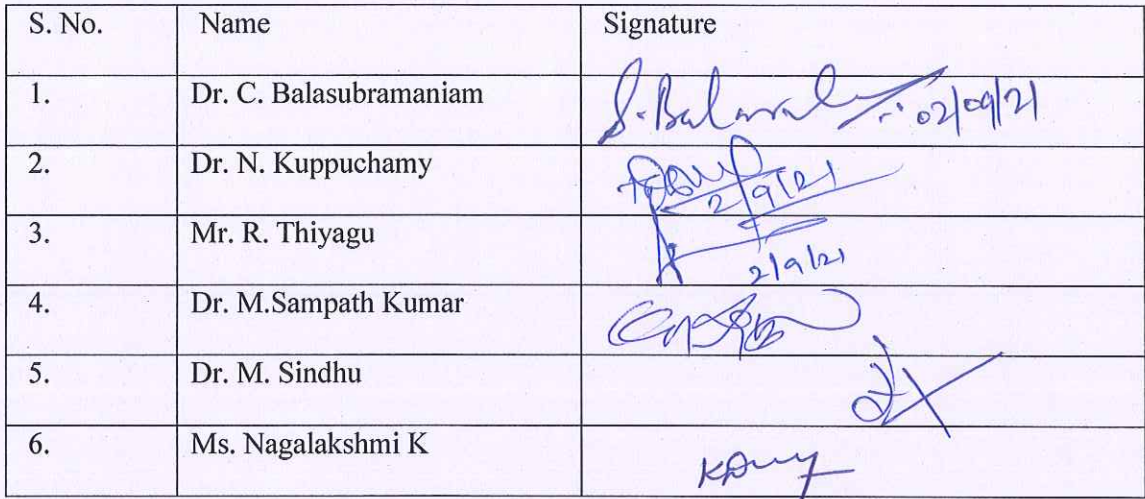 S. No. Name Signature
1. Dr. C. Balasubramaniam 02/09/21
2. Dr. N. Kuppuchamy 2/9/21
3. Mr. R. Thiyagu 2/9/21
4. Dr. M.Sampath Kumar
5. Dr. M. Sindhu
6. Ms. Nagalakshmi K